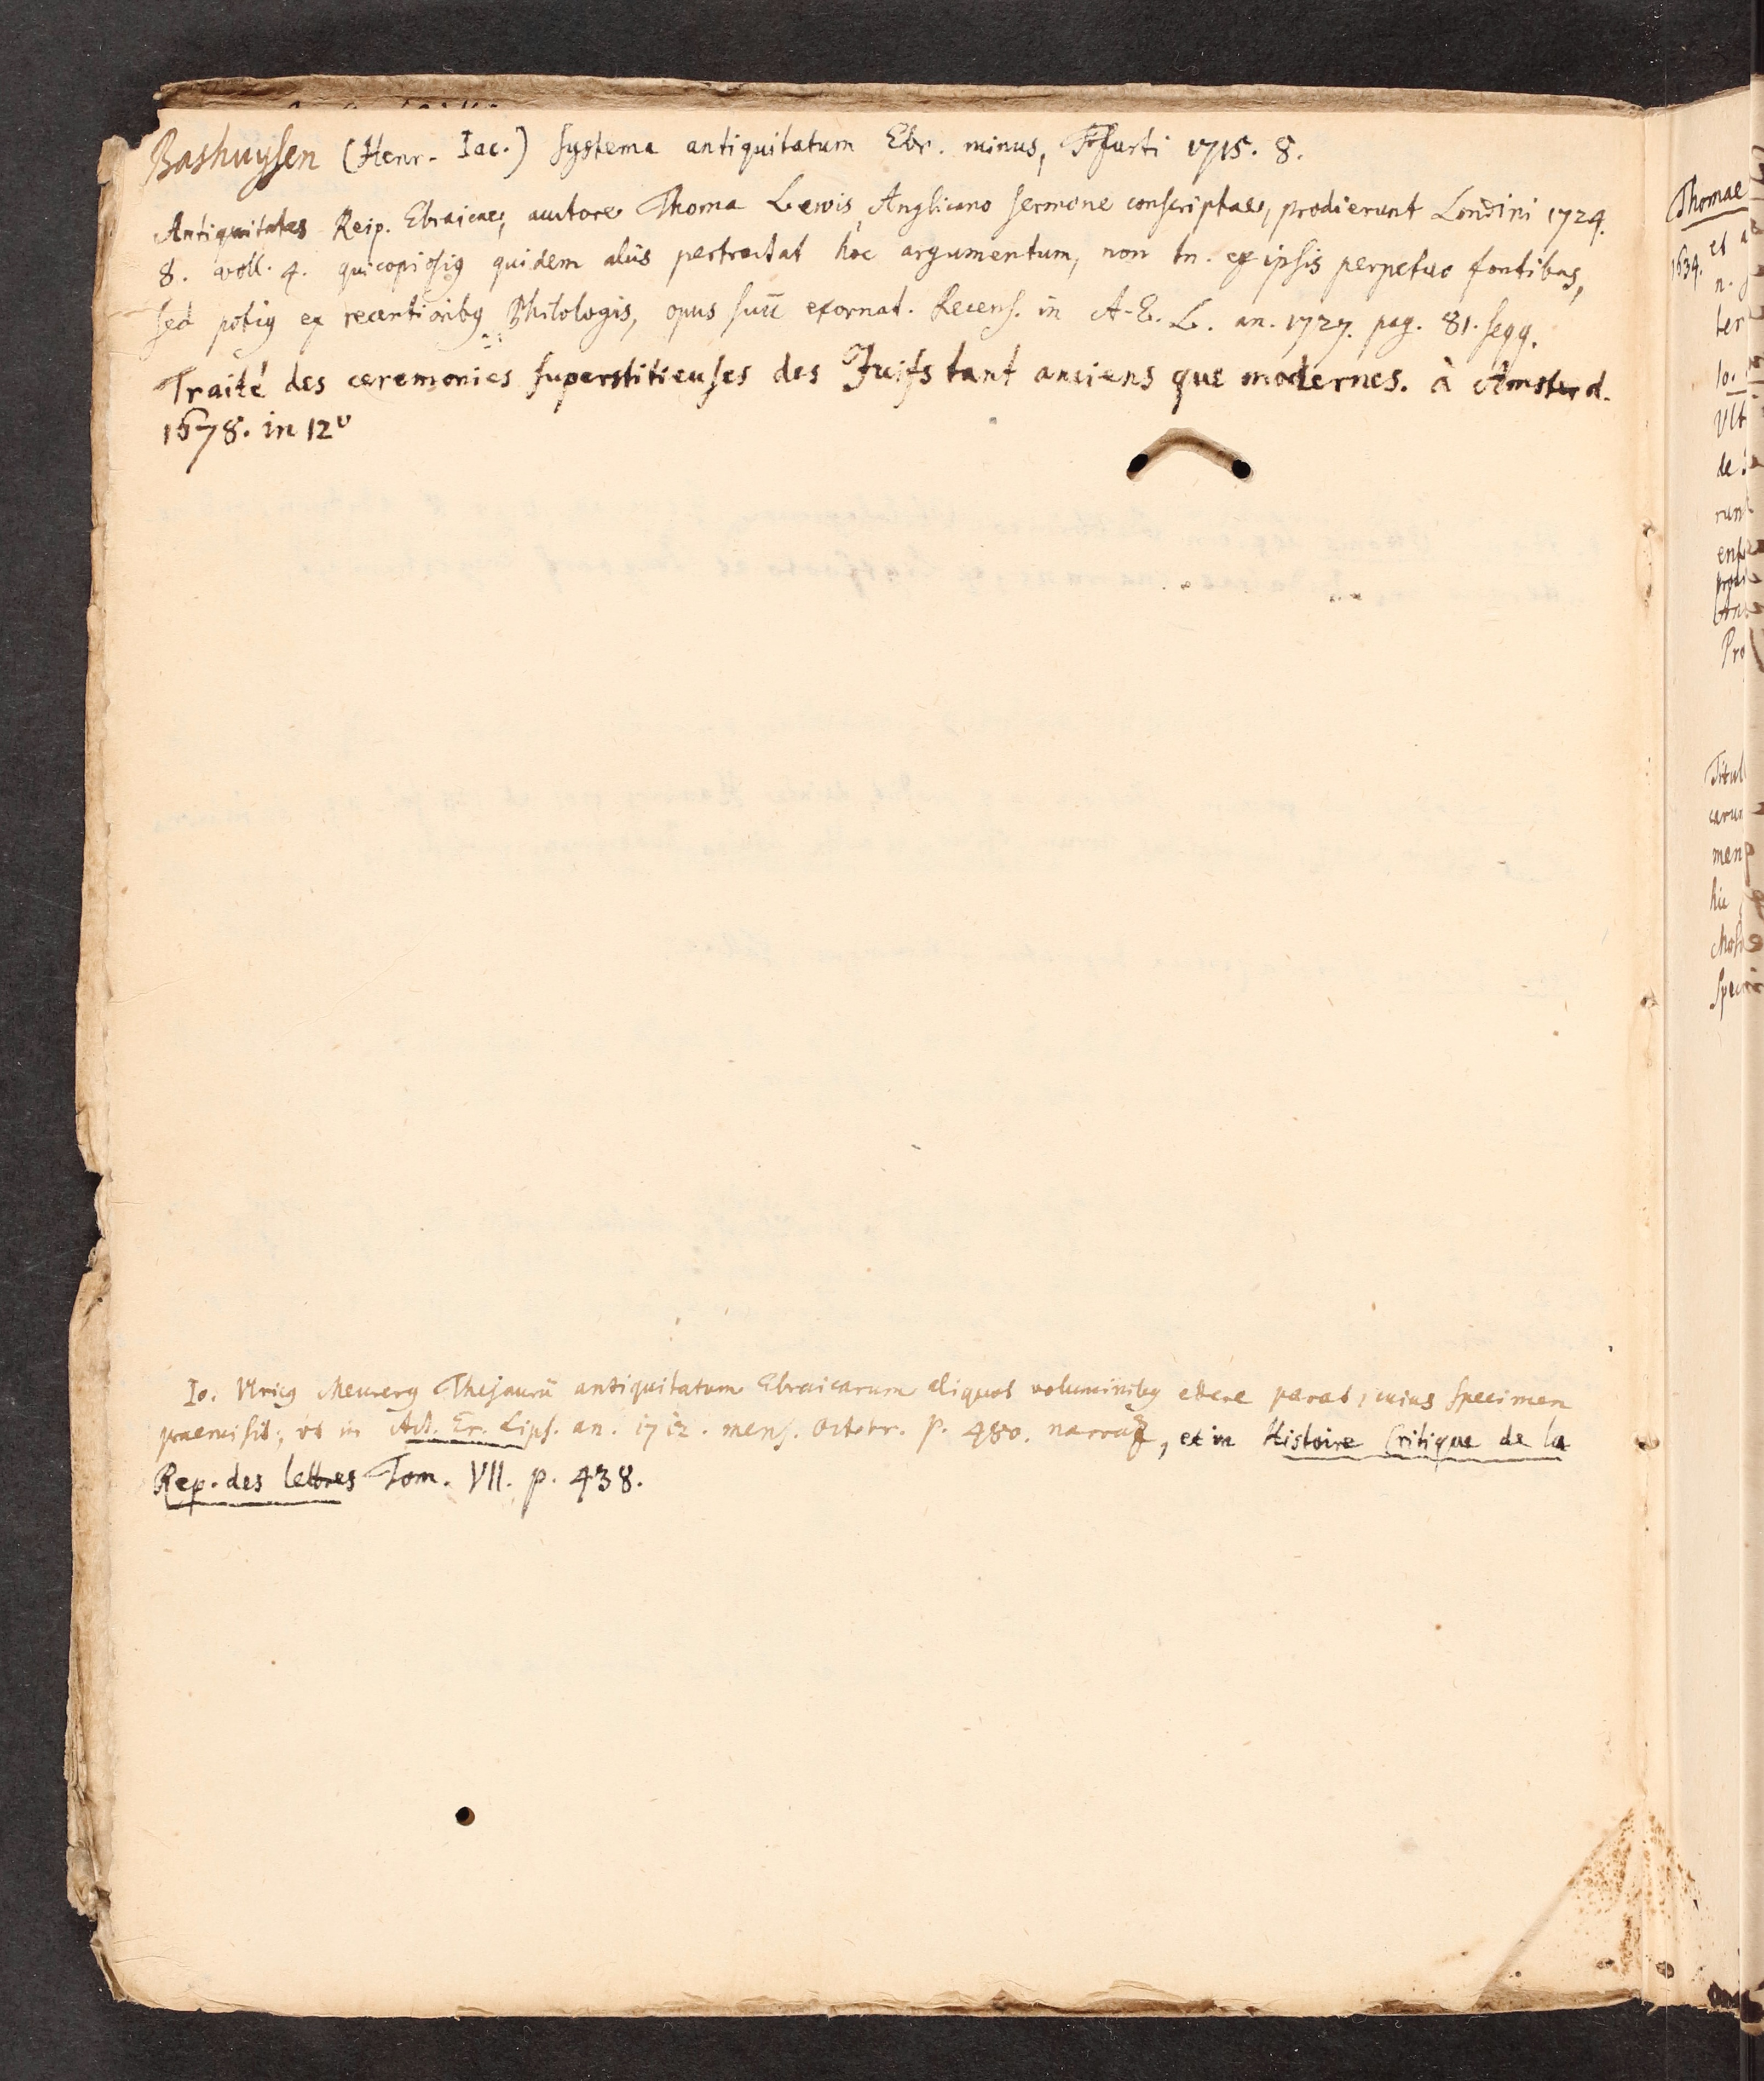 Bashuysen (Henr. Iac.) systema antiquitatum Ebr. minus, Frfurti 1715. 8.
Antiquitates Reip. Ebraicae, autore Thoma Lewis, Anglicano sermone conscriptae, prodierunt Londini 1724.
8. voll. 4. qui copiosiꝰ quidem aliis pertractat hoc argumentum, non tn. ex ipsis perpetuo fontibus,
sed potiꝰ ex recentioribꝰ Philologis, opus suū exornat. Recens. in A. E. L. an. 1727. pag. 81. seqq.
Traité des ceremonies superstitieuses des Juifs tant anciens que modernes. à Amsterd.
1678. in 12º
Io. Ulricꝰ Meurerꝰ Thesaurū antiquitatum Ebraicarum aliquot voluminibꝰ edere parat, cuius specimen
praemisit, vt in Act. Er. Lips. an. 1712. mens. Octobr. p. 480. narrat, et in Histoire Critique de la
Rep. des lettres Tom. VII. p. 438.
Thomae
1634. et
n.
ter
Io.
Vlt
de
run
Pro
Titul
carum
men
hic